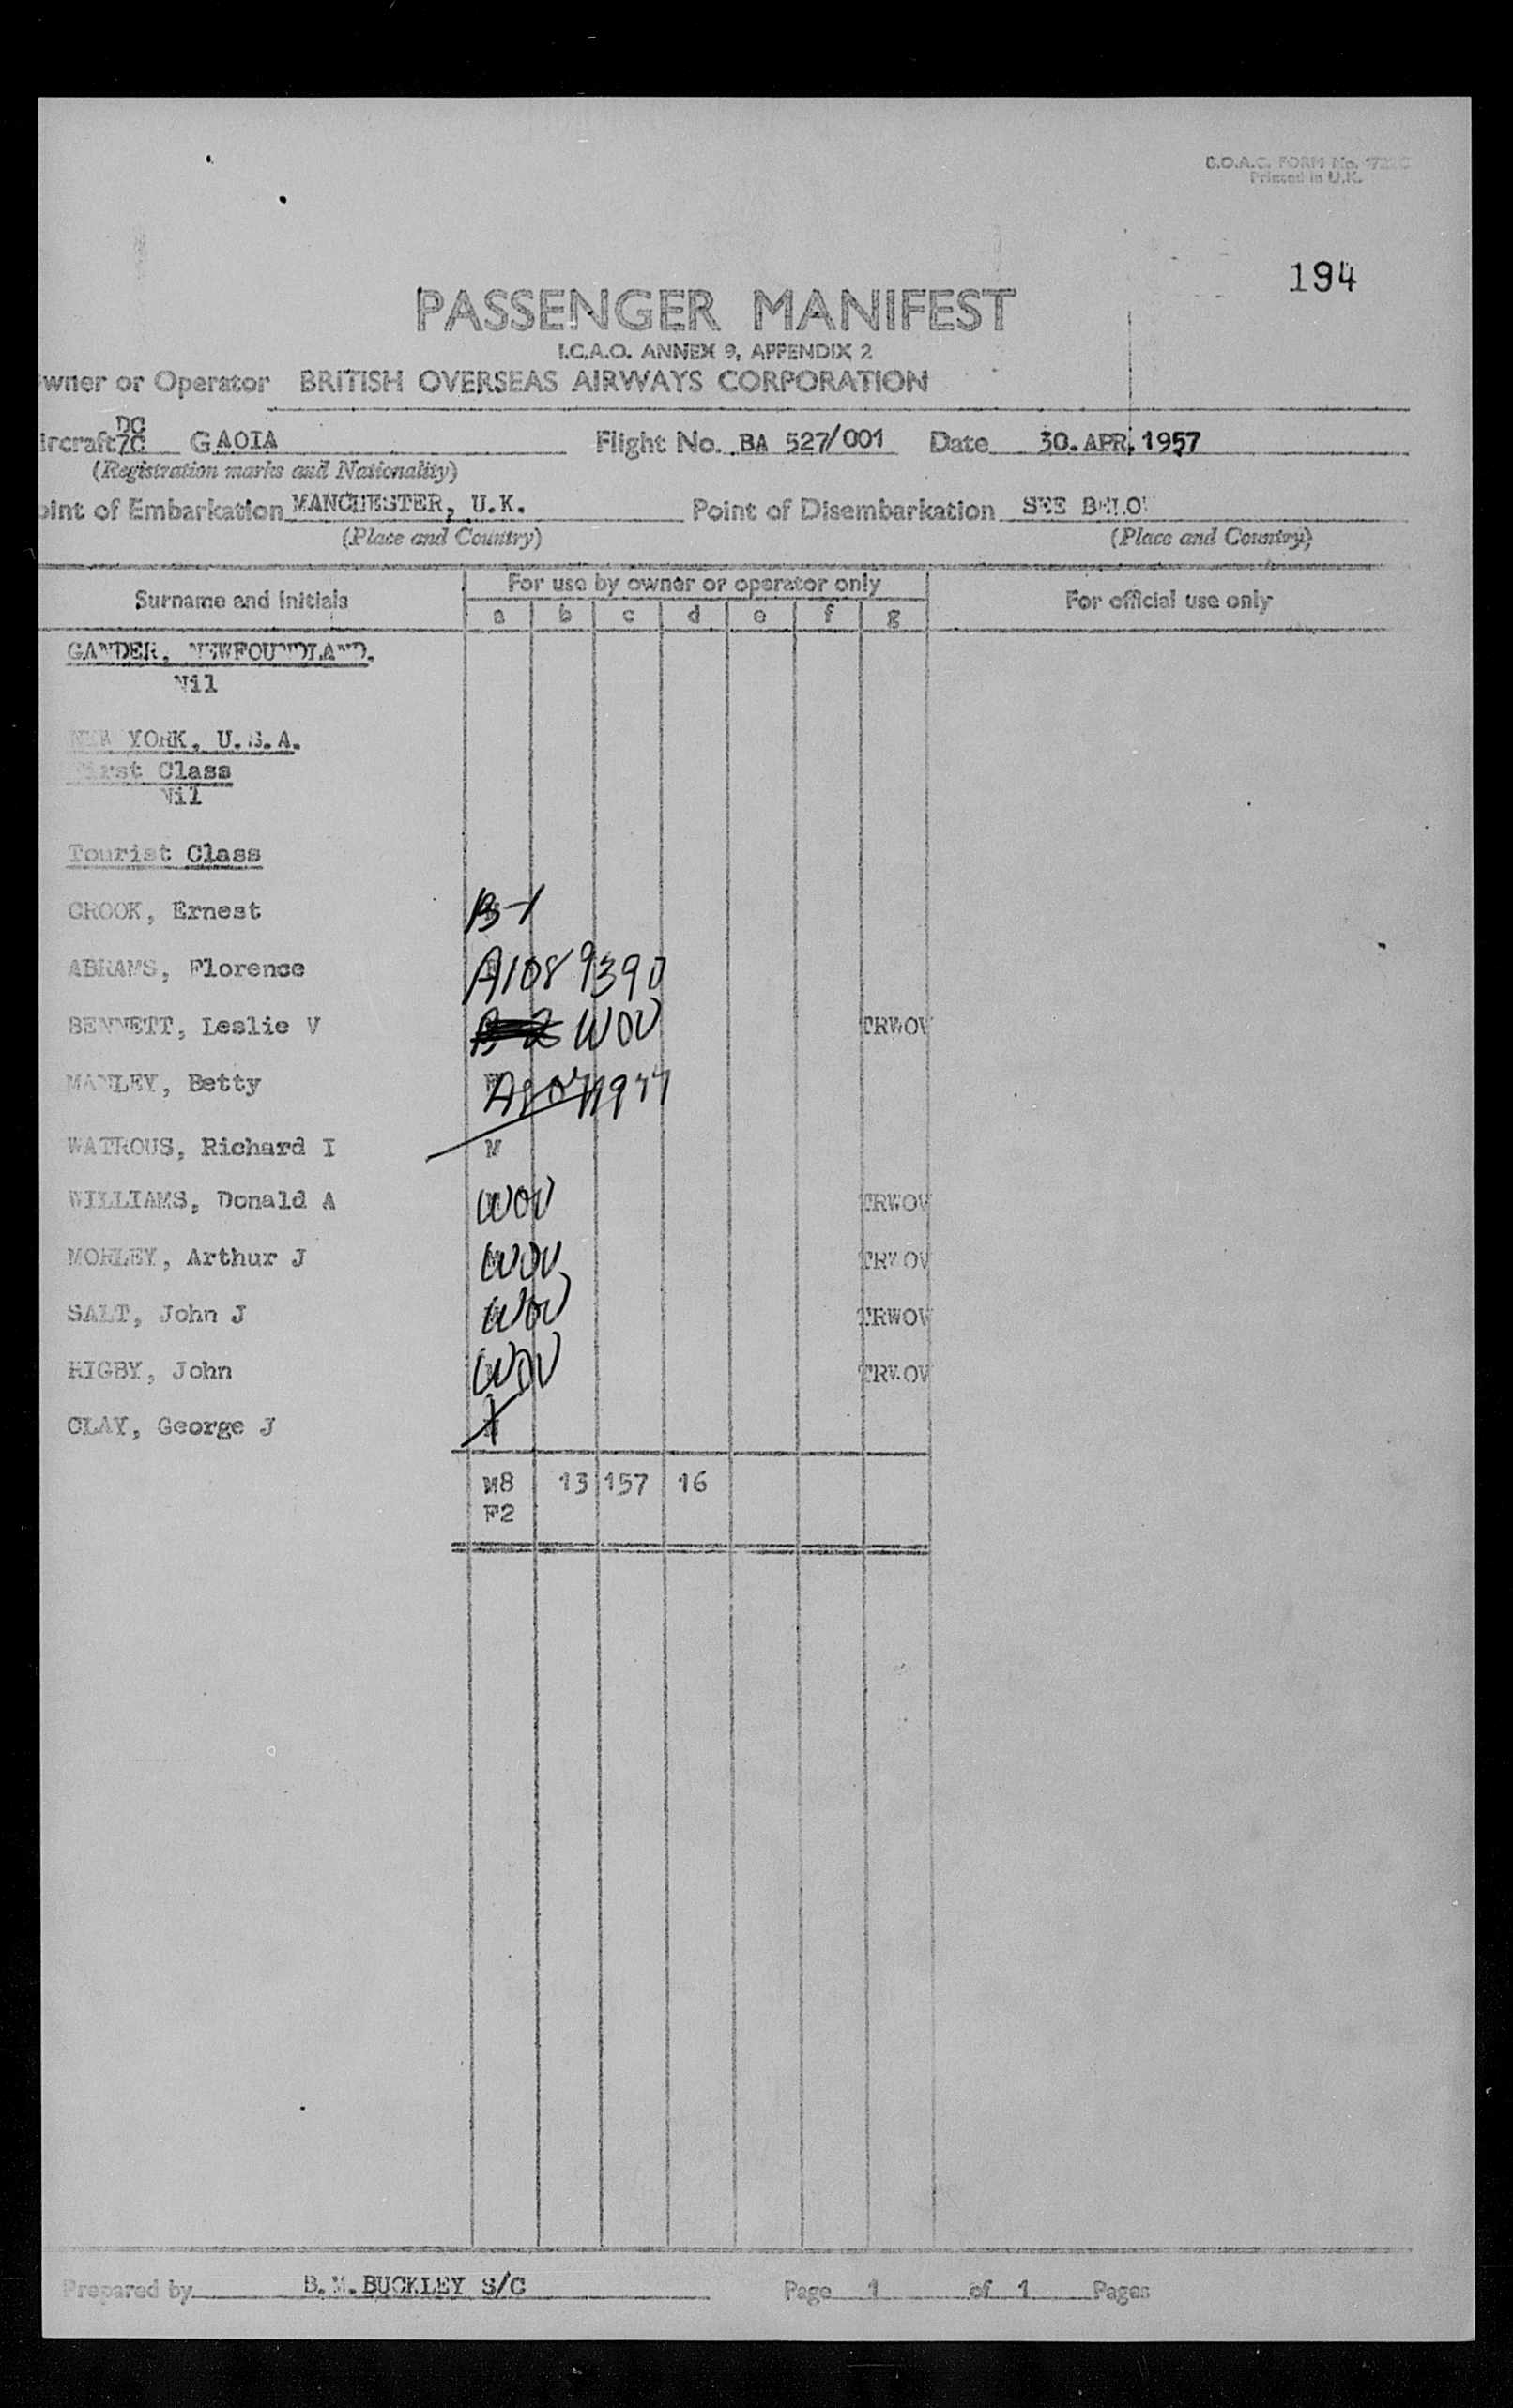 B.O.A.C. FORM No.
Printed in U.K.
194
PASSENGER MANIFEST
I.C.A.O. ANNEX 9, APPENDIX 2
wner or Operator BRITISH OVERSEAS AIRWAYS CORPORATION
DC
ircraft 7C GAOIA Flight No. BA 527/001 Date 30. APR. 1957
(Registration marks and Nationality)
oint of Embarkation MANCHESTER, U.K. Point of Disembarkation SEE BELO
(Place and Country) (Place and Country)
For use by owner or operator only
Surname and initials For official use only
a b c d e f g
GANDER, NEWFOUNDLAND.
Nil
NEW YORK, U.S.A.
First Class
Nil
Tourist Class
CROOK, Ernest B-1
ABRAMS, Florence A108 9390
BENNETT, Leslie V B-2 WOV TRWOV
MANLEY, Betty
WATROUS, Richard I M
WILLIAMS, Donald A WOV TRWOV
MORLEY, Arthur J WOV TRWOV
SALT, John J WOV TRWOV
RIGBY, John WOV TRWOV
CLAY, George J
M8 13 157 16
F2
Prepared by B.M. BUCKLEY S/C Page 1 of 1 Pages